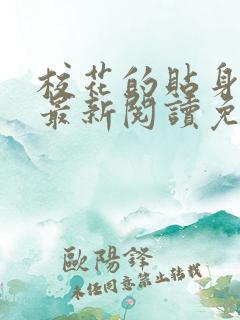 校花的貼身
最新閱讀免
歐陽鋒
未經同意禁止轉載